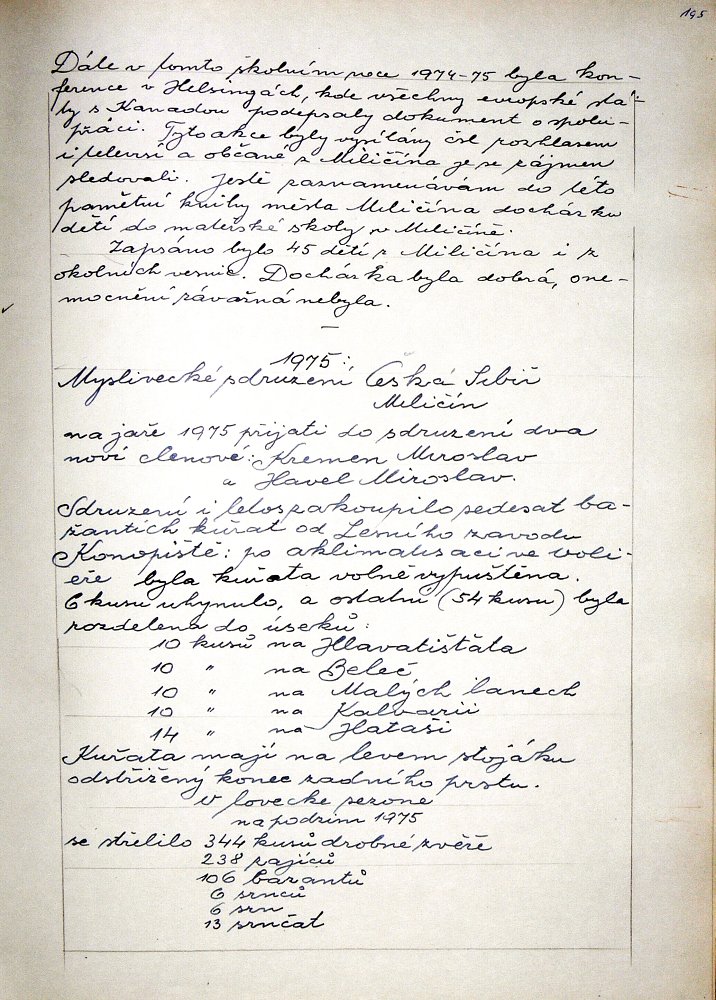 195
Dále v tomto školním roce 1974-75 byla kon-
ference v Helsingách, kde všechny evropské stá-
ty s Kanadou podepsaly dokument o spolu-
práci. Tyto akce byly vysílány čsl rozhlasem
i televisí a občané z Miličína je se zájmem
sledovali. Jestě zaznamenávám do této
pamětní knihy města Miličína docházku
dětí do mateřské školy v Miličíně.
Zapsáno bylo 45 dětí z Miličína i z
okolních vesnic. Docházka byla dobrá, one-
mocnění závažná nebyla.
–
1975:
Myslivecké sdruzení Česká Sibiř
Miličín
na jaře 1975 přijati do sdruzení dva
noví clenové: Kremen Miroslav
a Havel Miroslav.
Sdruzení i letos zakoupilo sedesat ba-
žantích kuřat od Lesního zavodu
Konopiště: po aklimatisaci ve voli-
eře byla kuřata volně vypuštěna.
6 kusu uhynulo, a ostatní (54 kusu) byla
rozdelena do úseků:
10 kusů na Hlavatišťata
10 " na Beleč
10 " na Malých lanech
10 " na Kalvarii
14 " na Hataši
Kuřata mají na levem stojáku
odstřižený konec zadního prstu.
V lovecke sezone
na podzim 1975
se střelilo 344 kusů drobné zvěře
238 zajíců
106 bazantů
6 srnců
6 srn
13 srnčat